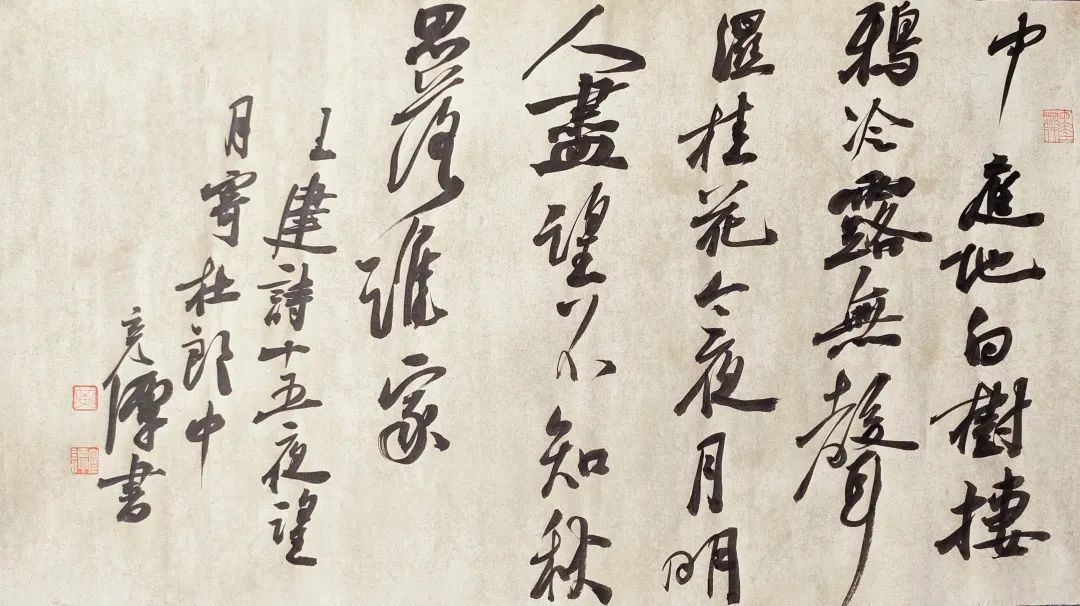 中庭地白樹棲
鴉冷露無聲
濕桂花今夜月明
人盡望不知秋
思落誰家
王建詩十五夜望
月寄杜郎中
書